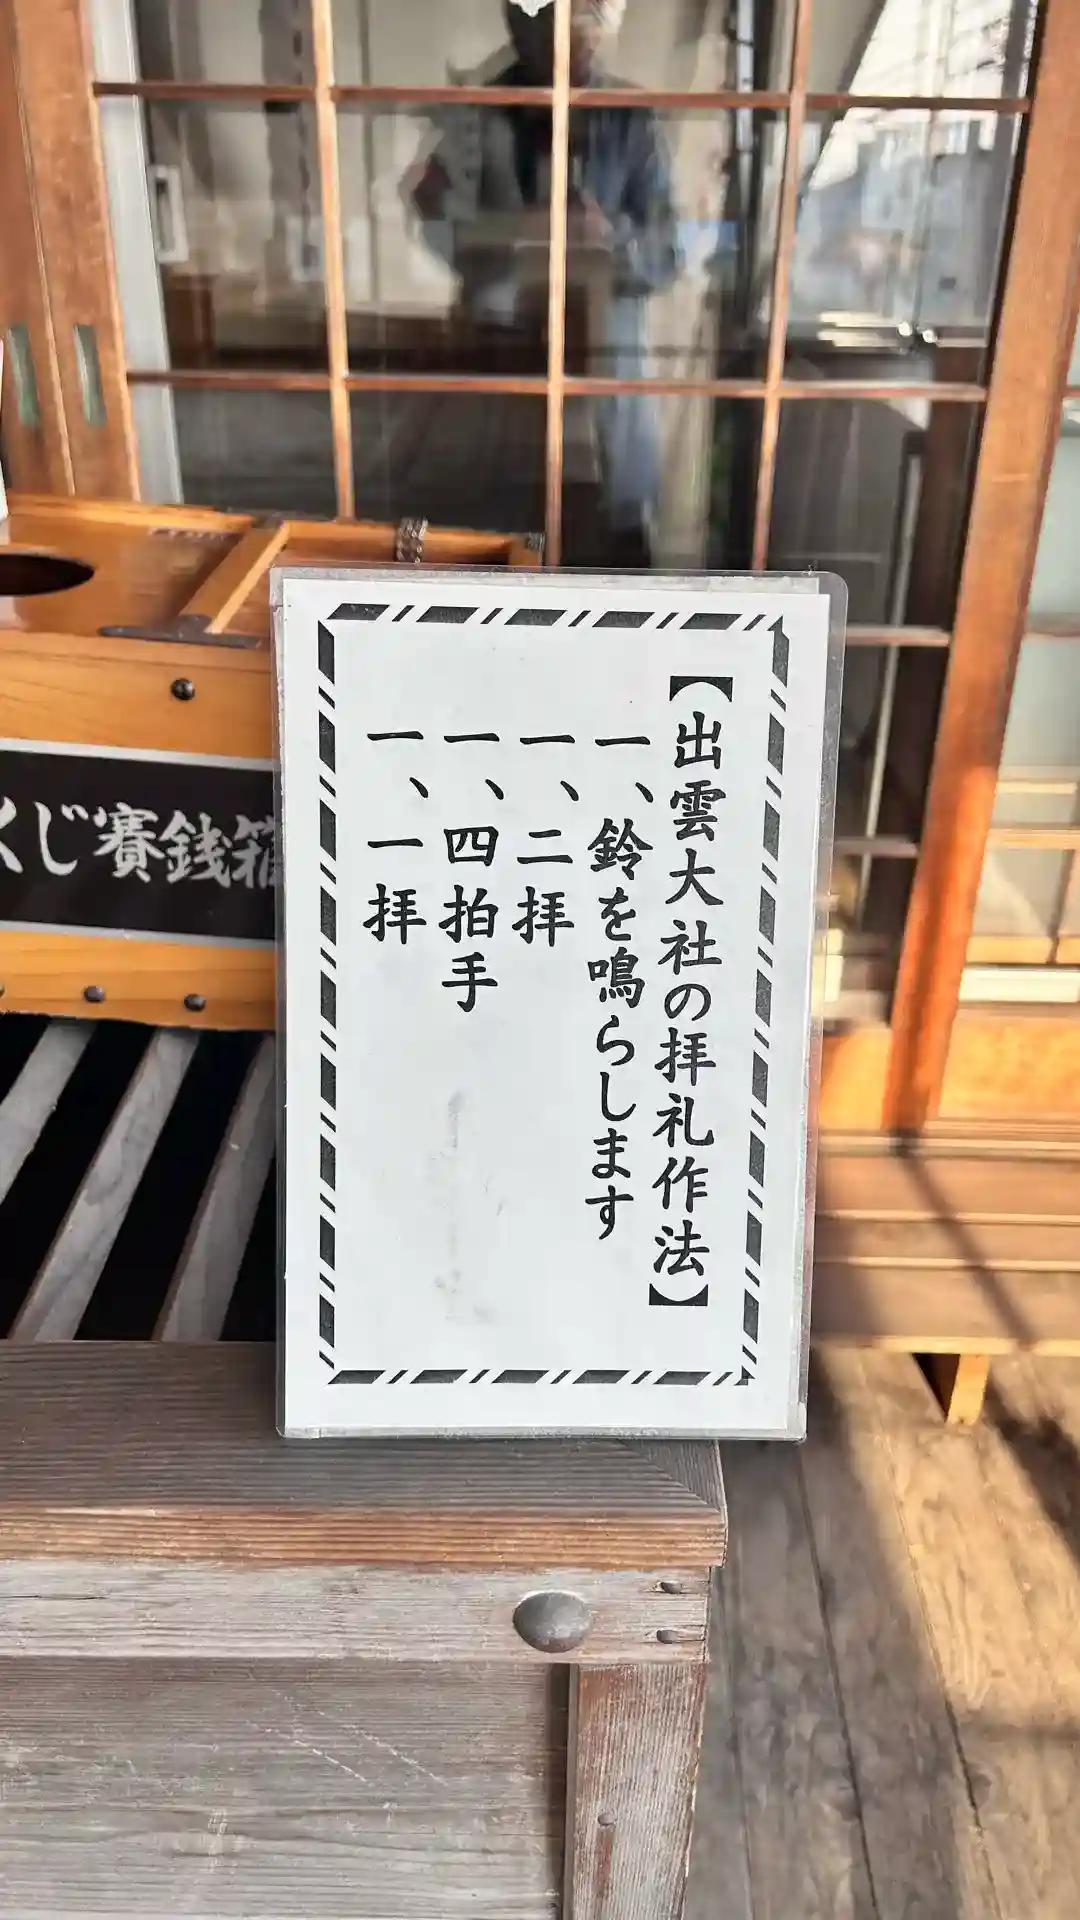 【出雲大社の拝礼作法】
一、鈴を鳴らします
一、二拝
一、四拍手
一、一拝
くじ賽銭箱